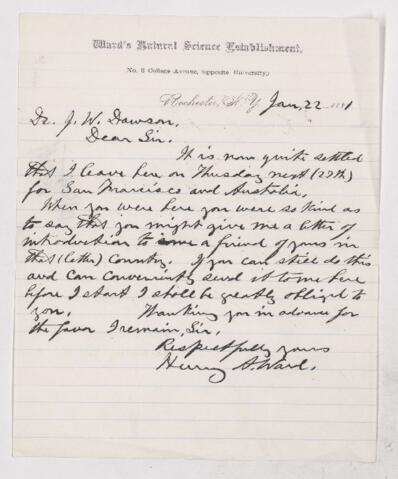 Ward's Natural Science Establishment,
No. 2 College Avenue, (opposite University.)
Rochester, N.Y. Jan. 22 1881
Dr. J. W. Dawson,
Dear Sir.
It is now quite settled
that I leave here on Thursday next (27th)
for San Francisco and Australia.
When you were here you were so kind as
to say that you might give me a letter of
introduction to some a friend of yours in
that (latter) Country. If you can still do this
and can conveniently send it to me here
before I start I shall be greatly obliged to
you. Thanking you in advance for
the favor I remain, Sir,
Respectfully yours
Henry A. Ward.